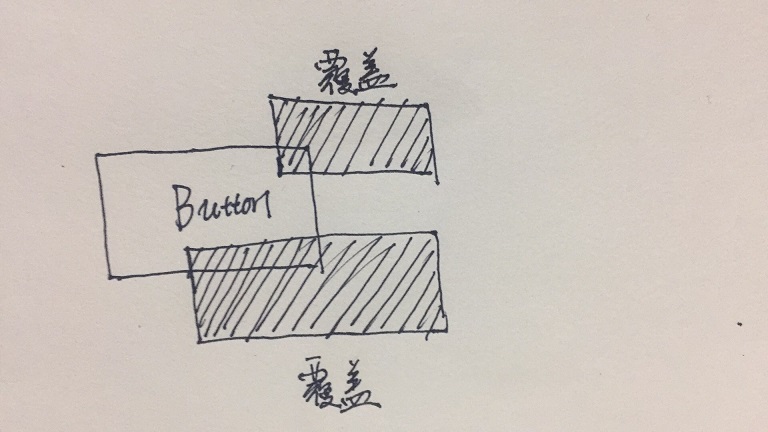 覆盖
Button
覆盖